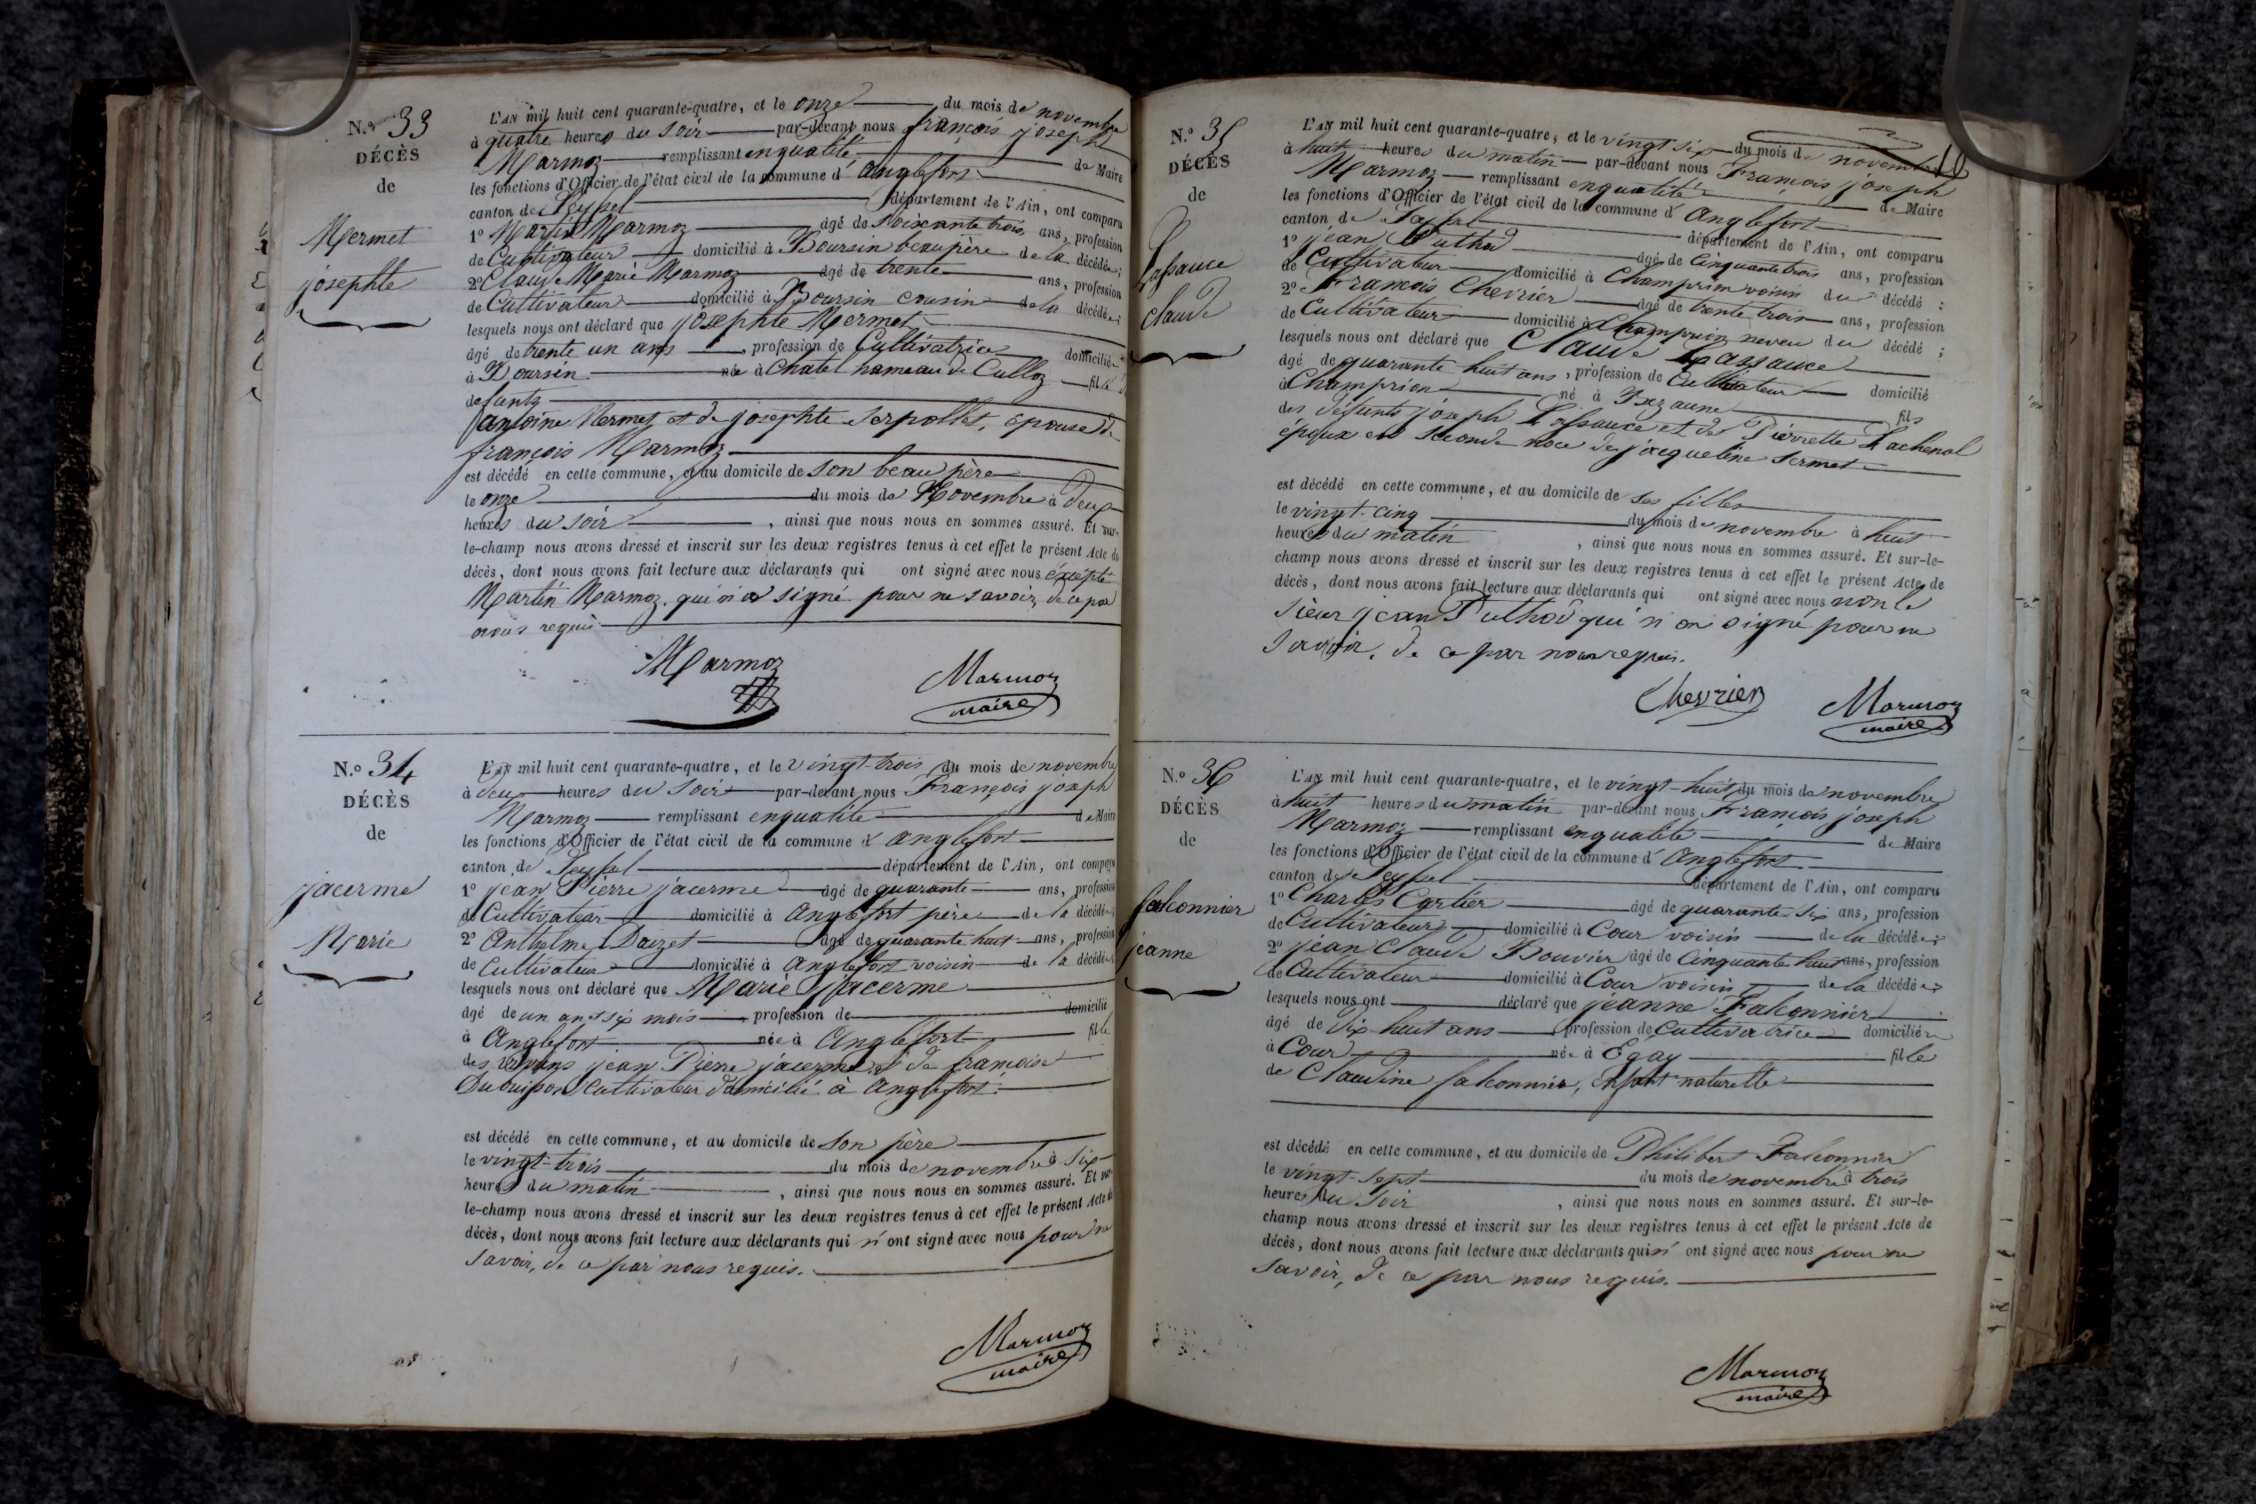 N.º 33
DÉCÈS
de
Mermet
josephte
L'AN mil huit cent quarante-quatre, et le onze du mois de novembre
à quatre heures du soir par-devant nous françois joseph
Marmoz remplissant enqualité de Maire
les fonctions d'Officier de l'état civil de la commune d' anglefort
canton de Seyssel département de l'Ain, ont comparu
1º Martin Marmoz âgé de soixante trois ans, profession
de Cultivateur domicilié à Boursin beaupère de la décédée;
2º Claude Marie Marmoz âgé de trente ans, profession
de Cultivateur domicilié à Boursin cousin de la décédée;
lesquels nous ont déclaré que josephte Mermet
âgé de trente un ans, profession de Cultivatrice domiciliée
à Boursin née à Chatel hameau de Culloz fille
de feu
antoine Mermet et de josephte Serpollet, épouse de
françois Marmoz
est décédé en cette commune, et au domicile de son beau père
le onze du mois de Novembre à deux
heures du soir, ainsi que nous nous en sommes assuré. Et sur-
le-champ nous avons dressé et inscrit sur les deux registres tenus à cet effet le présent Acte de
décès, dont nous avons fait lecture aux déclarants qui ont signé avec nous excepté
Martin Marmoz qui n'a signé pour ne savoir, de ce par
nous requis
Marmoz
Marmoz
maire
N.º 34
DÉCÈS
de
jacerme
Marie
L'AN mil huit cent quarante-quatre, et le vingt-trois du mois de novembre
à deux heures du soir par-devant nous François joseph
Marmoz remplissant enqualité de Maire
les fonctions d'Officier de l'état civil de la commune d' anglefort
canton de Seyssel département de l'Ain, ont comparu
1º jean Pierre jacerme âgé de quarante ans, profession
de Cultivateur domicilié à anglefort père de la décédée;
2º Anthelme Daizet âgé de quarante huit ans, profession
de Cultivateur domicilié à anglefort voisin de la décédée;
lesquels nous ont déclaré que Marie jacerme
âgé de un an et six mois, profession de domicilié
à Anglefort née à Anglefort fille
des vivans jean Pierre jacerme et de françoise
Dubuisson Cultivateur domicilié à Anglefort
est décédé en cette commune, et au domicile de son père
le vingt-trois du mois de novembre à six
heures du matin, ainsi que nous nous en sommes assuré. Et sur-
le-champ nous avons dressé et inscrit sur les deux registres tenus à cet effet le présent Acte de
décès, dont nous avons fait lecture aux déclarants qui n'ont signé avec nous pour ne
savoir, de ce par nous requis.
Marmoz
maire
N.º 35
DÉCÈS
de
Lassauce
claude
L'AN mil huit cent quarante-quatre, et le vingt six du mois de novembre
à huit heures du matin par-devant nous François joseph
Marmoz remplissant enqualité de Maire
les fonctions d'Officier de l'état civil de la commune d' Anglefort
canton de Seyssel département de l'Ain, ont comparu
1º jean Puthod âgé de Cinquante trois ans, profession
de Cultivateur domicilié à Champrion voisin du décédé;
2º François Chevrier âgé de trente trois ans, profession
de Cultivateur domicilié à Champrion neveu du décédé;
lesquels nous ont déclaré que Claude Lassauce
âgé de quarante huit ans, profession de Cultivateur domicilié
à Champrion né à fils
des défunts joseph Lassauce et de Pierrette Lachenal
époux en seconde noce de jacqueline Sermet
est décédé en cette commune, et au domicile de ses filles
le vingt-cinq du mois de novembre à huit
heures du matin, ainsi que nous nous en sommes assuré. Et sur-le-
champ nous avons dressé et inscrit sur les deux registres tenus à cet effet le présent Acte de
décès, dont nous avons fait lecture aux déclarants qui ont signé avec nous non le
sieur jean Puthod qui n'a signé pour ne
savoir, de ce par nous requis.
Chevrier
Marmoz
maire
N.º 36
DÉCÈS
de
falconnier
jeanne
L'AN mil huit cent quarante-quatre, et le vingt-huit du mois de novembre
à huit heures du matin par-devant nous François joseph
Marmoz remplissant enqualité de Maire
les fonctions d'Officier de l'état civil de la commune d' Anglefort
canton de Seyssel département de l'Ain, ont comparu
1º Charles Cartier âgé de quarante six ans, profession
de Cultivateur domicilié à Cour voisin de la décédée;
2º jean Claude Bouvier âgé de Cinquante huit ans, profession
de Cultivateur domicilié à Cour voisin de la décédée;
lesquels nous ont déclaré que jeanne Falconnier
âgé de dix-huit ans profession de Cultivatrice domiciliée
à Cour née à fille
de Claudine falconnier, Enfant naturelle
est décédé en cette commune, et au domicile de Philibert Falconnier
le vingt-sept du mois de novembre à trois
heures du soir, ainsi que nous nous en sommes assuré. Et sur-le-
champ nous avons dressé et inscrit sur les deux registres tenus à cet effet le présent Acte de
décès, dont nous avons fait lecture aux déclarants qui n'ont signé avec nous pour ne
savoir, de ce par nous requis.
Marmoz
maire